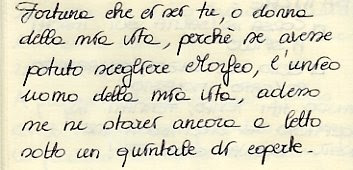 Fortuna che ci sei tu, o donna
della mia vita, perchè se avesse
potuto scegliere Morfeo, l'unico
uomo della mia vita, adesso
me ne starei ancora a letto
sotto un quintale di coperte.